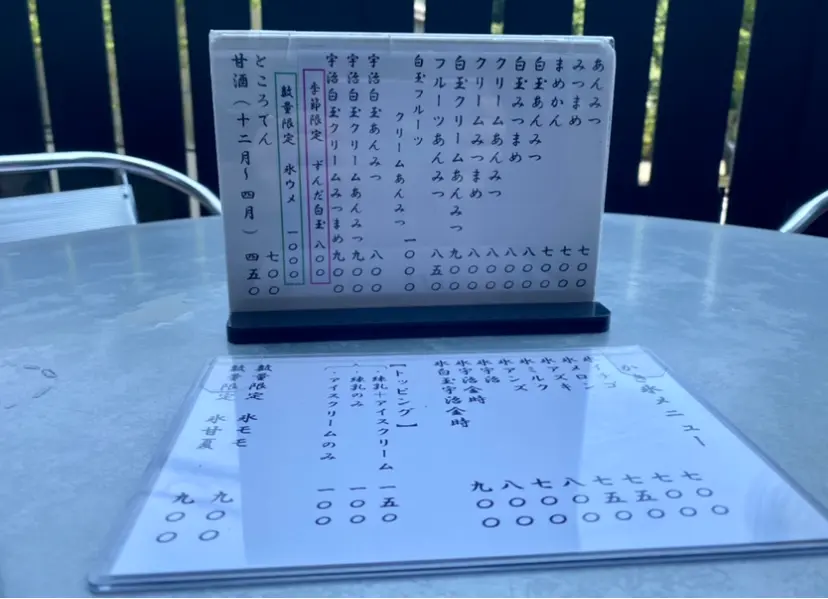 あんみつ 七〇〇
みつまめ 七〇〇
まめかん 七〇〇
白玉あんみつ 八〇〇
白玉みつまめ 八〇〇
クリームあんみつ 八〇〇
クリームみつまめ 八〇〇
白玉クリームあんみつ 九〇〇
フルーツあんみつ 八五〇
白玉フルーツ
クリームあんみつ 一〇〇〇
宇治白玉あんみつ 八〇〇
宇治白玉クリームあんみつ 九〇〇
宇治白玉クリームみつまめ 九〇〇
季節限定 ずんだ白玉 八〇〇
数量限定 氷ウメ 一〇〇〇
ところてん 七〇〇
甘酒（十二月～四月） 四五〇
かき氷メニュー
氷イチゴ 七〇〇
氷メロン 七〇〇
氷アズキ 七五〇
氷ミルク 七五〇
氷アンズ 八〇〇
氷宇治 七〇〇
氷宇治金時 八〇〇
氷白玉宇治金時 九〇〇
【トッピング】
・練乳+アイスクリーム 一五〇
・練乳のみ 一〇〇
・アイスクリームのみ 一〇〇
数量限定 氷モモ 九〇〇
数量限定 氷甘夏 九〇〇